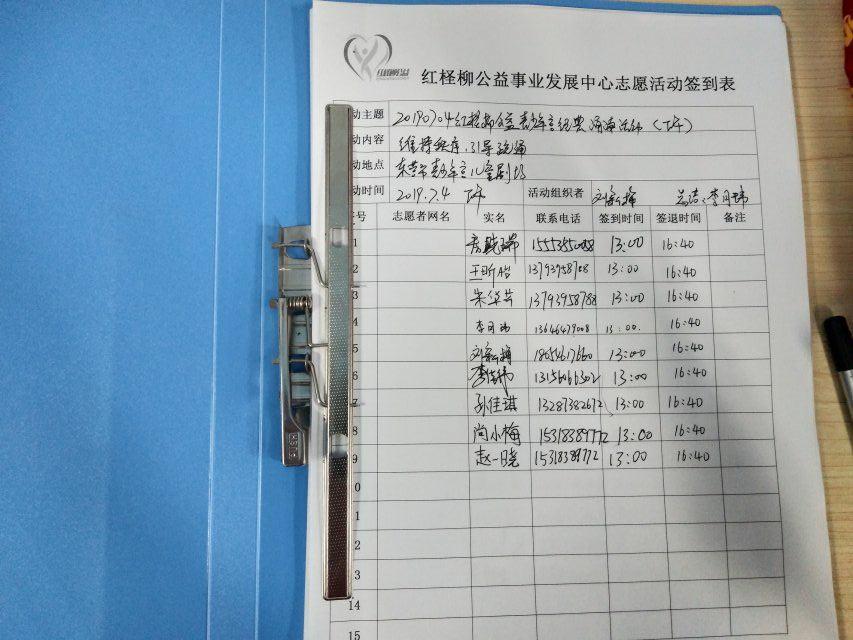 红柽柳公益事业发展中心志愿活动签到表
动主题 20190704红柽柳公益青少年宫经典诵读活动（下午）
动内容 维持秩序、引导疏通
动地点 东营市青少年宫儿童剧场
动时间 2019.7.4 下午 活动组织者 总结:李月玮
序号 志愿者网名 实名 联系电话 签到时间 签退时间 备注
1 13:00 16:40
2 王昕怡 13793958788 13:00 16:40
3 朱华芸 13793958788 13:00 16:40
4 李月玮 13646479008 13:00. 16:40
5 18654617660 13:00 16:40
6 13156066502 13:00 16:40
7 孙佳琪 13287382672 13:00 16:40
8 尚小梅 15318389772 13:00 16:40
9 赵一晓 15318389772 13:00 16:40
0
1
2
3
14
15